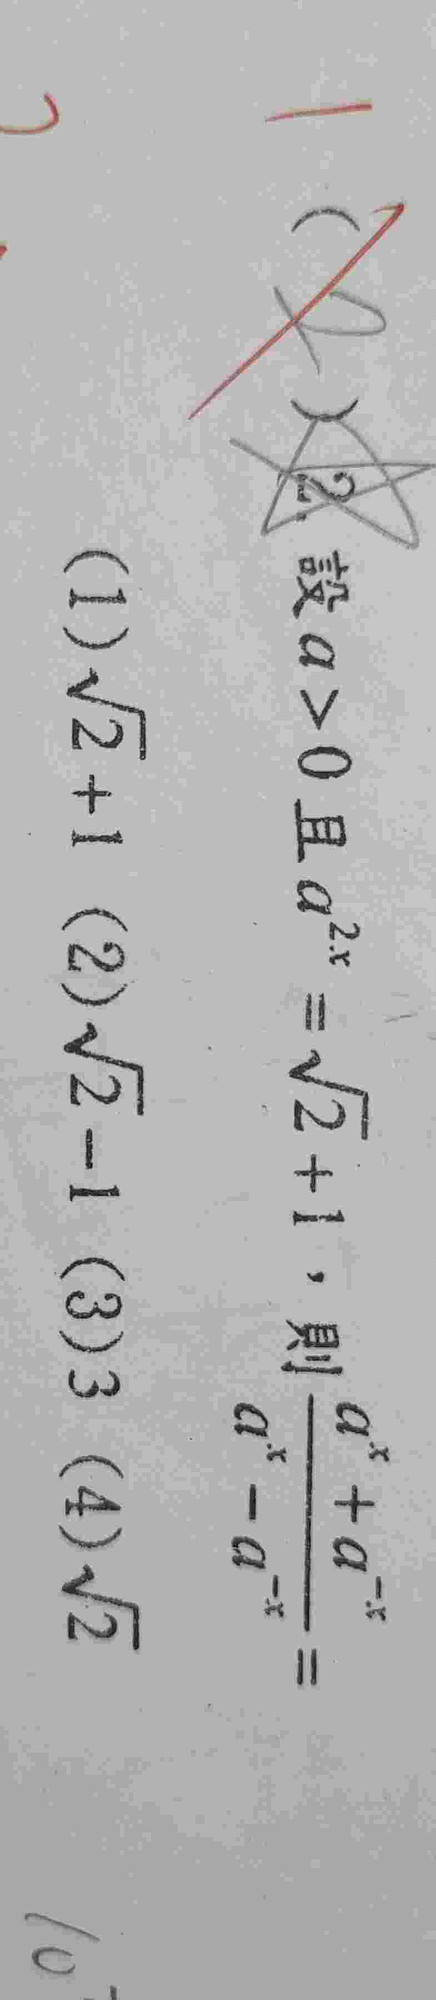 1 ( 2 ) 2. 設 a > 0 且 a^{2x} = √2 + 1，則 \frac{a^x + a^{-x}}{a^x - a^{-x}} =
(1)√2+1 (2)√2−1 (3)3 (4)√2